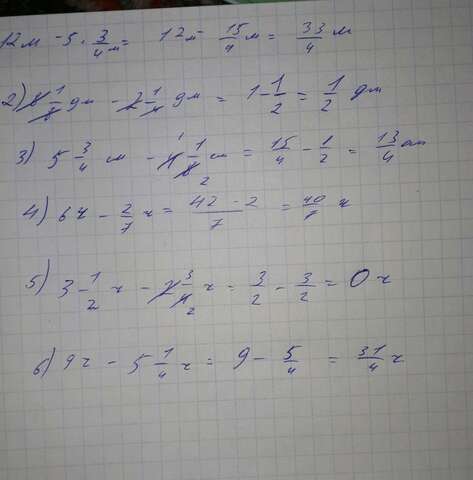 12м - 5 · 3/4 м = 12м - 15/4 м = 33/4 м
2) 8 1/8 дм - 2 1/4 дм = 1 - 1/2 = 1/2 дм
3) 5 3/4 м - 4 1/8 м = 15/4 - 1/2 = 13/4 м
4) 6ч - 2/7 ч = 42 - 2/7 = 40/7 ч
5) 3 1/2 ч - 2 3/4 ч = 3/2 - 3/2 = 0 ч
6) 9ч - 5 1/4 ч = 9 - 5/4 = 31/4 ч